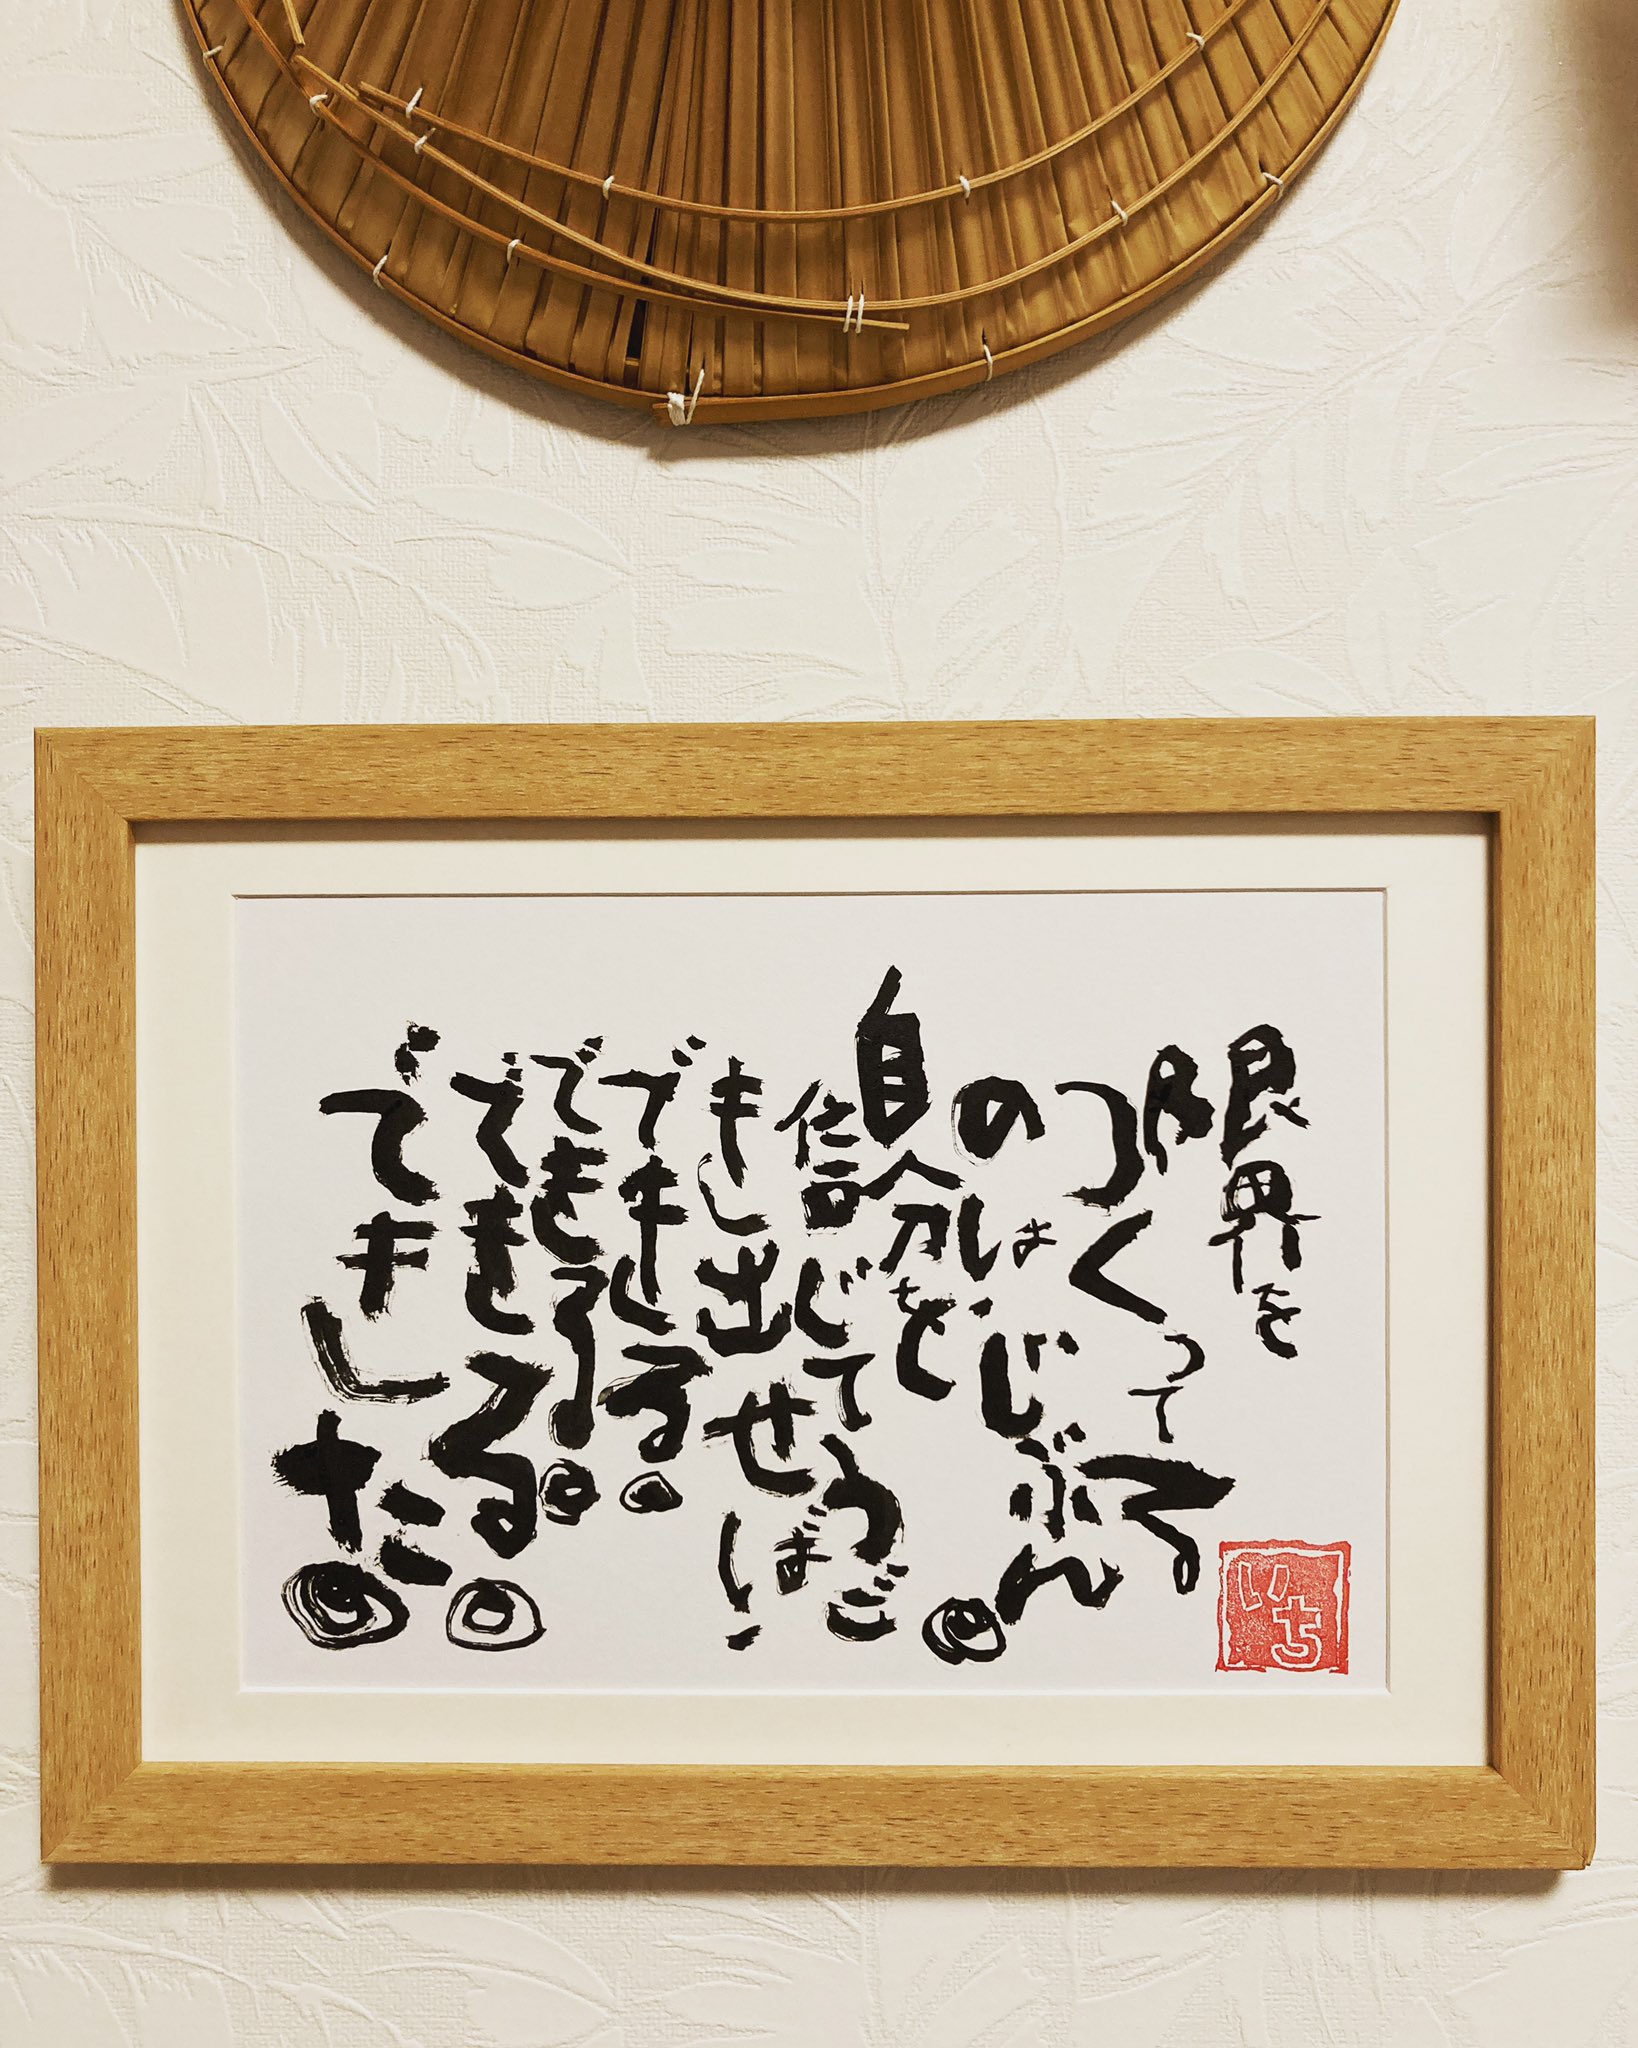 限界を
つくってる
のは、じぶん。
自分を
信じてうご
き出せば、
できる。
できる。
できる。
できた。
いち